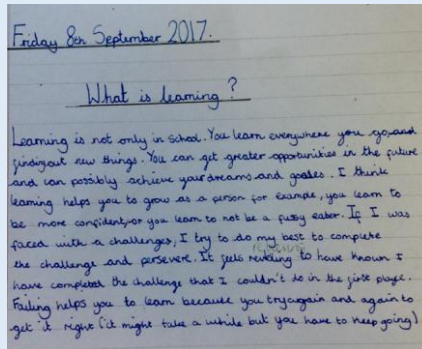 Friday 8th September 2017.
What is learning?
Learning is not only in school. You learn everywhere you go, and
finding out new things. You can get greater opportunities in the future
and can possibly achieve your dreams and goales. I think
learning helps you to grow as a person for example, you learn to
be more confident, or you learn to not be a fussy eater. If I was
faced with a challenges, I try to do my best to complete
the challenge and persevere. It feels to have known I
have completed the challenge that I couldn't do in the first place.
Failing helps you to learn because you try again and again to
get it right (it might take a while but you have to keep going)